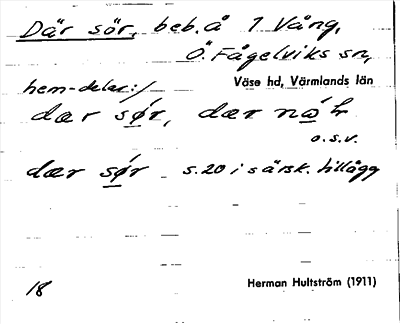 Där sör, beb. å 1 Vång,
Ö. Fågelviks sn,
Väse hd, Värmlands län
hem-delar:/
dær sør, dær nɷ́ ꝛ
o.s.v.
dær sør s. 20 i särsk. tillägg
18
Herman Hultström (1911)